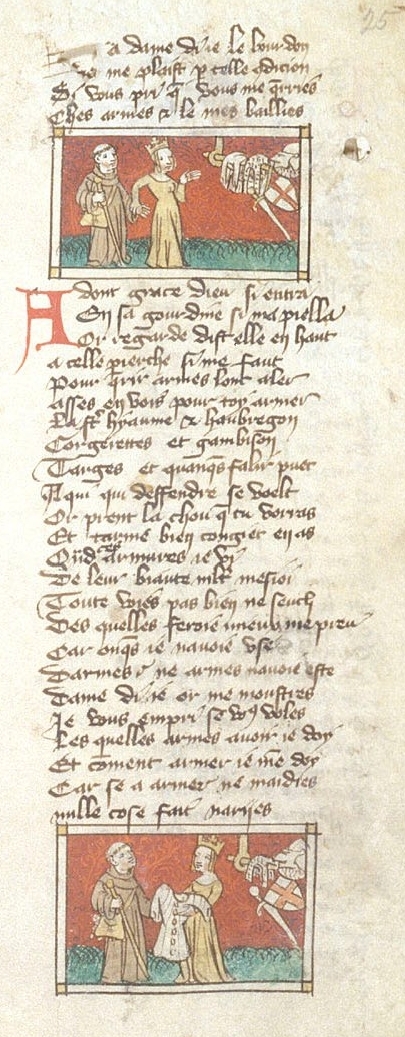 25
a dame di ie le bourdon
me plaist p celle condicion
Si vous pri q vous me qrries
Ches armes & le mes baillies
Adont grace dieu si entra
En sa gourdine si mapiella
Or regarde dist elle en haut
a celle pierche si me faut
Pour qrir armes lont aler
asses en vois pour toy armer
La st hyaume & haubregon
Gorgerettes et gambison
Targes et quanqs falir puet
A qui qui deffendre se voelt
Or prent la chou q tu vorras
Et tarme bien congiet en as
Qnd armures ie vi
De leur biaute mlt mesioi
Toute voies pas bien ne seuch
Des quelles feroie mieux me preu
Car onqs ie navoie vse
Darmes ne arme navoie este
Dame di ie or me monstres
Je vous empri se vo9 voles
Les quelles armes avoir ie doy
Et coment armer ie me doy
Car se a armer ne maidies
nulle cose fait naries